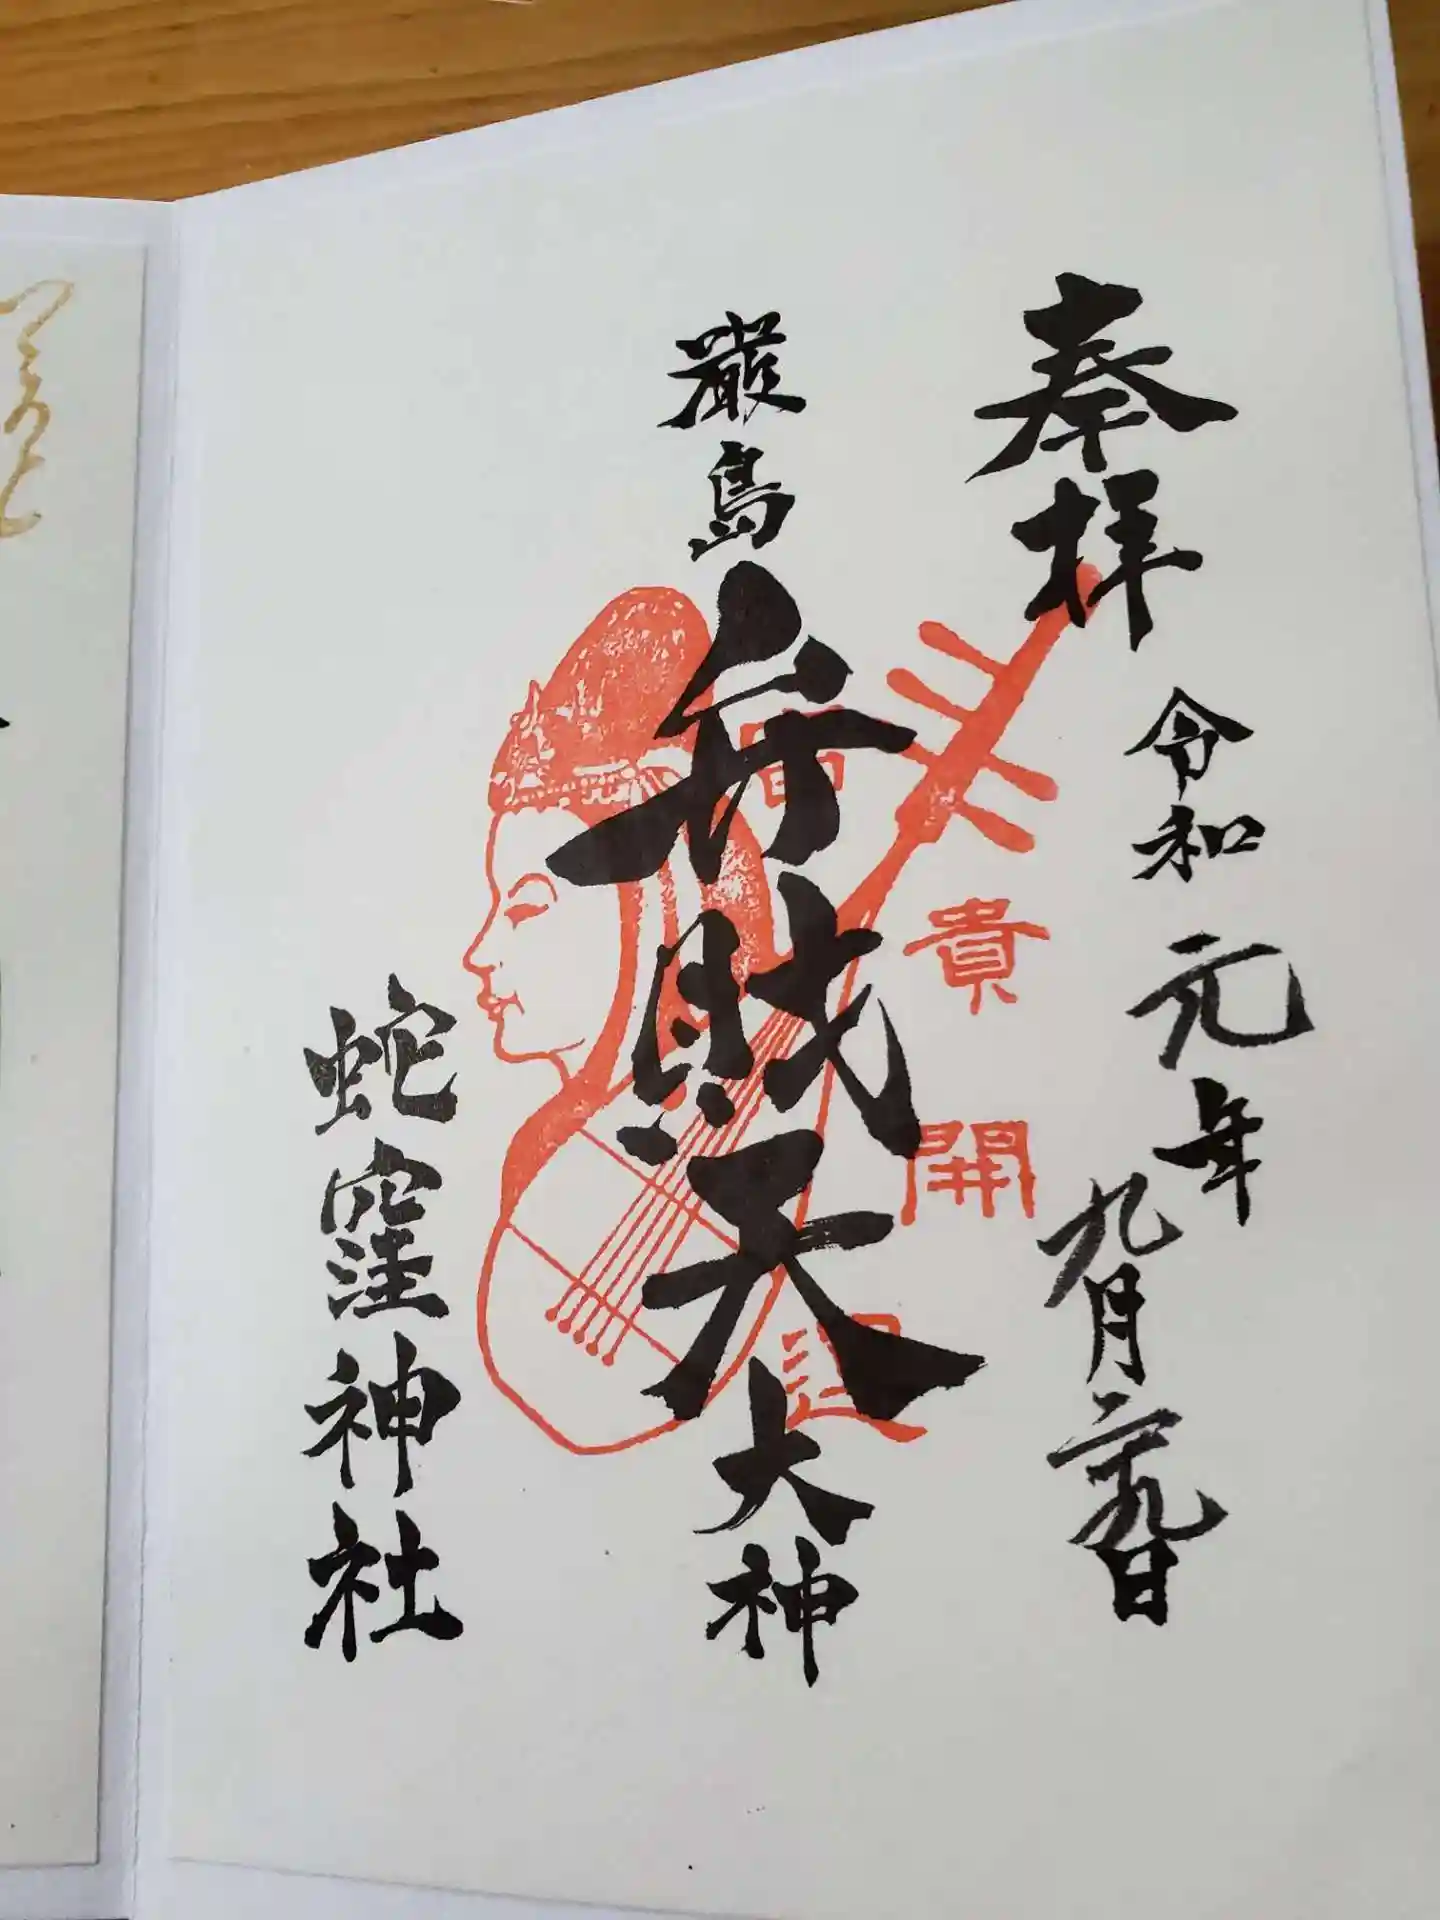 奉拝
令和元年九月二十九日
厳島弁財天大神
蛇窪神社
富貴開運